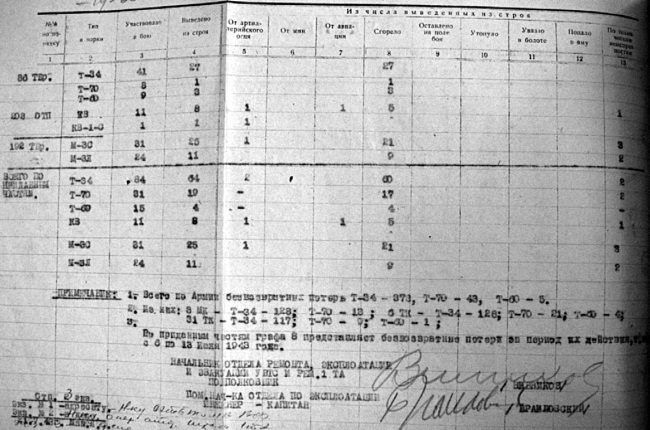 Из числа выведенных из строя
№№ Тип и марки Участвовало в бою Выведено из строя От артиллерийского огня От мин От авиации Сгорело Оставлено на поле боя Утонуло Увязло в болоте Попало в яму По техническим неисправностям
1 2 3 4 5 6 7 8 9 10 11 12 13
86 ТБр. Т-34 41 27 27
Т-70 8 1 1
Т-60 9 3 3
ОТП КВ 11 8 1 1 5 1
КВ-1-С 1 1 1
192 ТБр. М-3С 31 25 1 21 3
М-3Л 24 11 9 2
ВСЕГО ПО ПРИДАННЫМ ЧАСТЯМ. Т-34 84 64 2 60 2
Т-70 31 19 - 17 2
Т-60 15 4 - 4 -
КВ 11 8 1 1 5 1
М-3С 31 25 1 21 3
М-3Л 24 11 9 2
ПРИМЕЧАНИЕ: 1. Всего по Армии безвозвратных потерь Т-34 - 373, Т-70 - 43, Т-60 - 5.
2. Из них: 3 МК - Т-34 - 128; Т-70 - 13 ; 6 ТК - Т-34 - 128; Т-70 - 21; Т-60 - 4;
3. 31 ТК - Т-34 - 117; Т-70 - 9; Т-60 - 1 ;
По приданным частям графа 8 представляет безвозвратные потери за период их действия,
с 6 по 13 Июля 1943 года.
НАЧАЛЬНИК ОТДЕЛА РЕМОНТА, ЭКСПЛОАТАЦИИ
И ЭВАКУАЦИИ УПТС И РЕМ.1 ТА
ПОДПОЛКОВНИК
ПОМ.НАЧ-КА ОТДЕЛА ПО ЭКСПЛОАТАЦИИ
ИНЖЕНЕР - КАПИТАН
Отп. 3 экз.